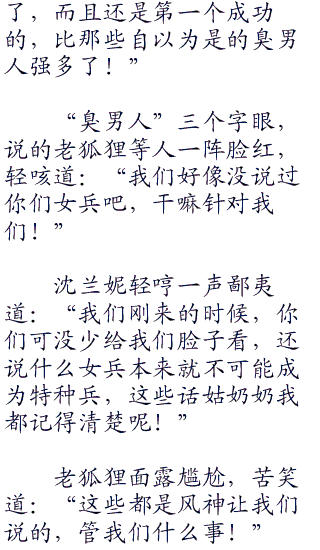 了，而且还是第一个成功
的，比那些自以为是的臭男
人强多了！”
“臭男人”三个字眼，
说的老狐狸等人一阵脸红，
轻咳道：“我们好像没说过
你们女兵吧，干嘛针对我
们！”
沈兰妮轻哼一声鄙夷
道：“我们刚来的时候，你
们可没少给我们脸子看，还
说什么女兵本来就不可能成
为特种兵，这些话姑奶奶我
都记得清楚呢！”
老狐狸面露尴尬，苦笑
道：“这些都是风神让我们
说的，管我们什么事！”